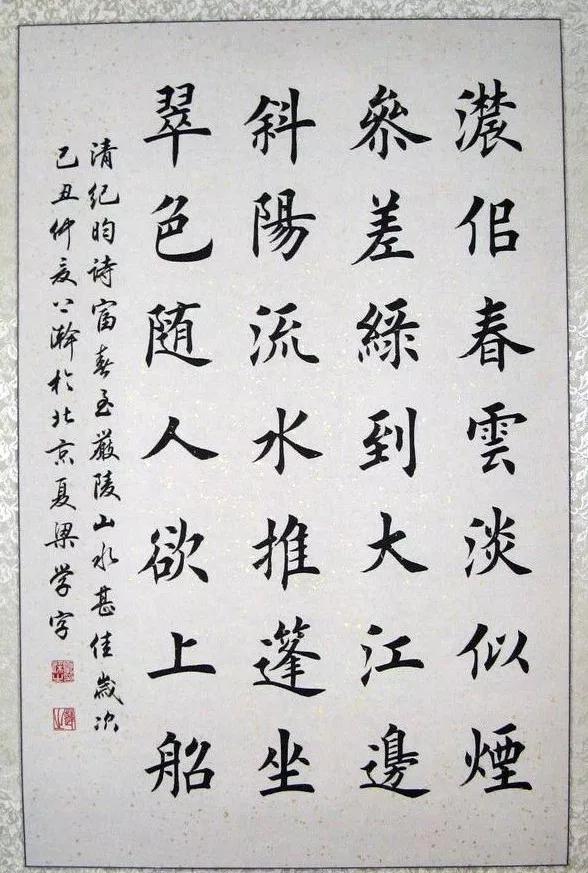 濃侣春雲淡似煙
參差綠到大江邊
斜陽流水推篷坐
翠色随人欲上船
清紀昀詩富春至嚴陵山水甚佳歲次
己丑仲夏於北京夏梁学字